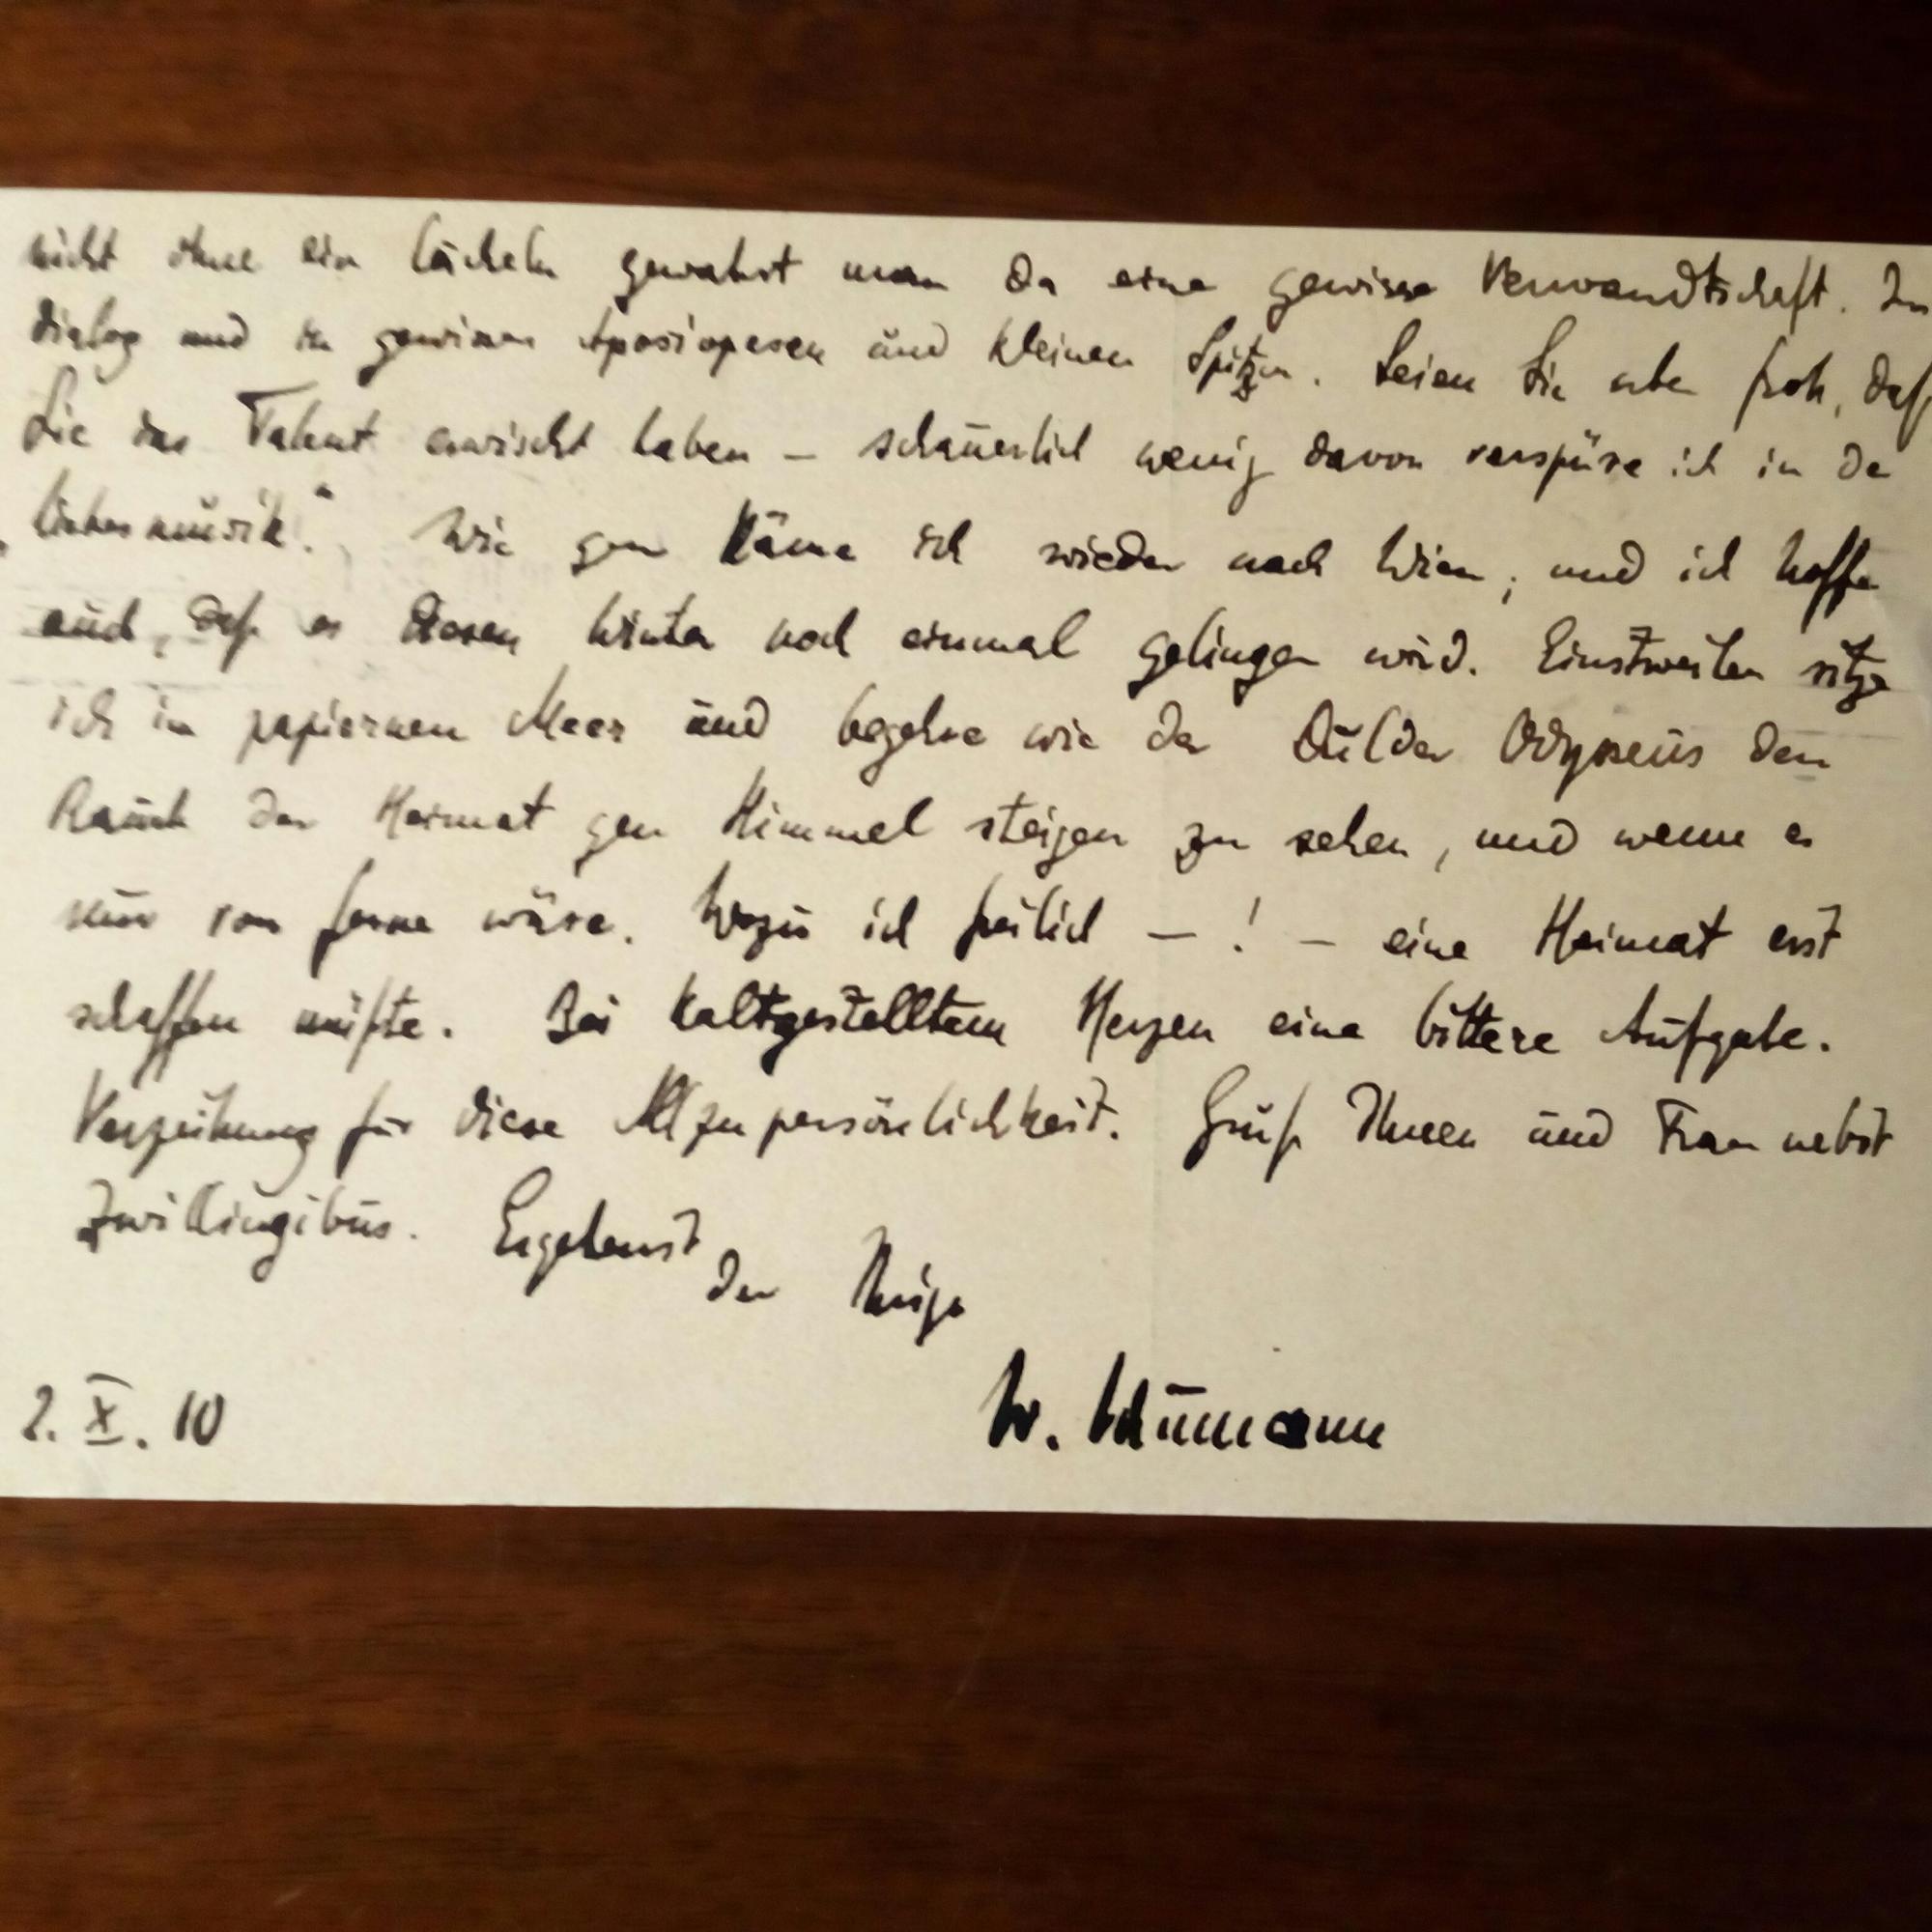 nicht ohne ein Lächeln gewahrt man da eine gewisse Verwandtschaft. Im
Dialog und in gewissen Aposiopesen und kleinen Spitzen. Seien Sie aber froh, daß
Sie das Talent erwischt haben – schauerlich wenig davon verspüre ich in der
„Liebesmusik“. Wie gern käme ich wieder nach Wien, und ich hoffe
auch, daß es diesen Winter noch einmal gelingen wird. Einstweilen sitze
ich im papiernen Meer und begehre wie der Dulder Odysseus den
Rauch der Heimat gen Himmel steigen zu sehen, und wenn es
nur von ferne wäre. Wozu ich freilich – ! – eine Heimat erst
schaffen müßte. Bei kaltgestelltem Herzen eine bittere Aufgabe.
Verzeihung für diese Allzupersönlichkeit. Gruß Ihnen und Frau nebst
Zwillingibus. Ergebenst
der Ihrige
W. Schumann
2. X. 10